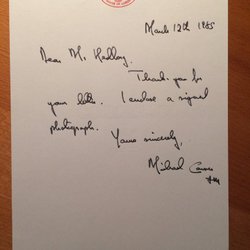 March 12th 1985
Dear Mr.
Thank you for
your letter. I enclose a signed
photograph.
Yours sincerely,
Michael